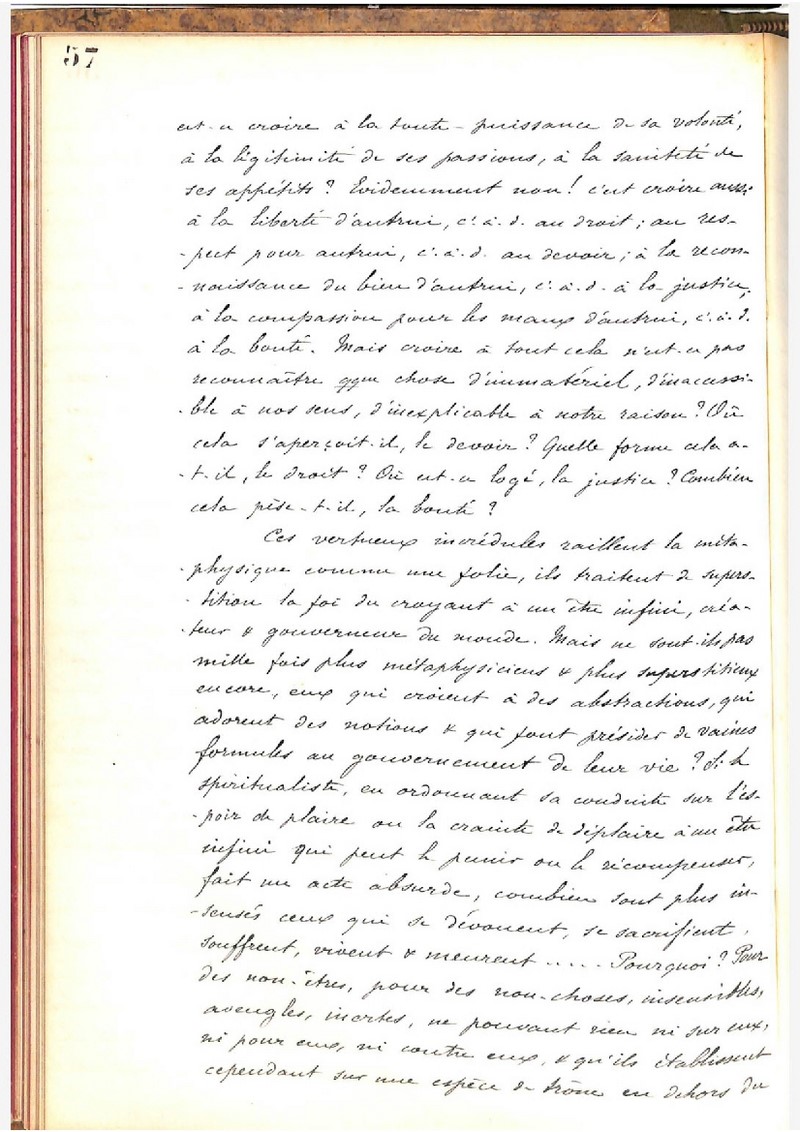 57
est-ce croire à la toute-puissance de sa volonté,
à la légitimité de ses passions, à la sainteté de
ses appétits? Evidemment non! c'est croire aussi
à la liberté d'autrui, c.à.d. au droit; au res-
-pect pour autrui, c.à.d. au devoir; à la recon-
-naissance du bien d'autrui, c.à.d. à la justice,
à la compassion pour les maux d'autrui, c.à.d.
à la bonté. Mais croire à tout cela n'est-ce pas
reconnaître qque chose d'immatériel, d'inaccessi-
-ble à nos sens, d'inexplicable à notre raison? Où
cela s'aperçoit-il, le devoir? Quelle forme cela a-
-t-il, le droit? Où est-ce logé, la justice? Combien
cela pèse-t-il, la bonté?
Ces vertueux incrédules raillent la méta-
-physique comme une folie, ils traitent de supers-
-tition la foi du croyant à un être infini, créa-
-teur & gouverneur du monde. Mais ne sont-ils pas
mille fois plus métaphysiciens & plus superstitieux
encore, eux qui croient à des abstractions, qui
adorent des notions & qui font présider de vaines
formules au gouvernement de leur vie? Si le
spiritualiste, en ordonnant sa conduite sur l'es-
-poir de plaire ou la crainte de déplaire à un être
infini qui peut le punir ou le récompenser,
fait un acte absurde, combien sont plus in-
-sensés ceux qui se dévouent, se sacrifient,
souffrent, vivent & meurent ..... Pourquoi? Pour
des non-êtres, pour des non-choses, insensibles,
aveugles, inertes, ne pouvant rien ni sur eux,
ni pour eux, ni contre eux, & qu'ils établissent
cependant sur une espèce de trône en dehors du